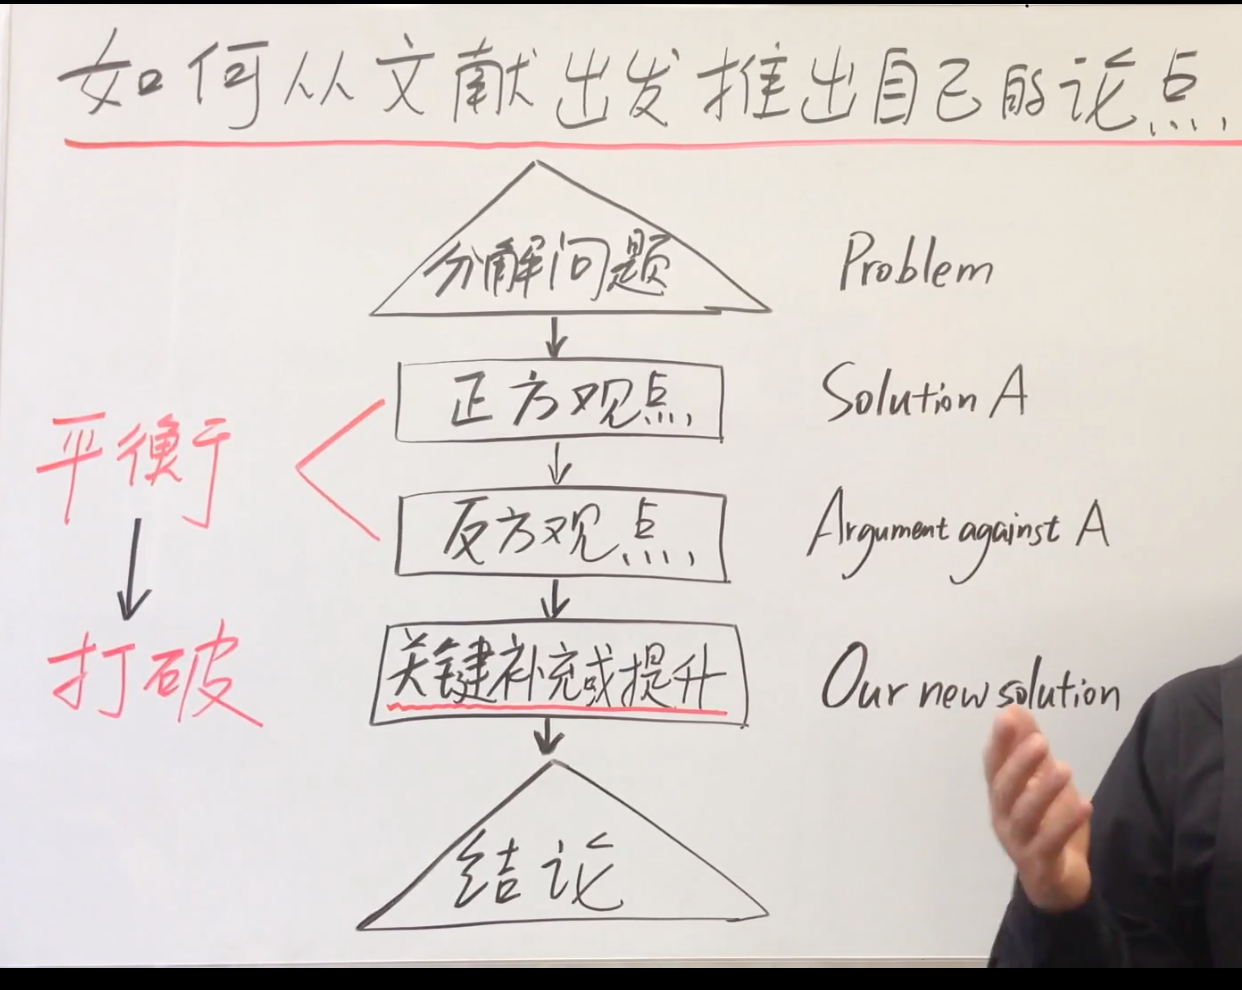 如何从文献出发推出自己的论点
分解问题 Problem
正方观点 Solution A
平衡于
反方观点 Argument against A
打破
关键补充或提升 Our new solution
结论